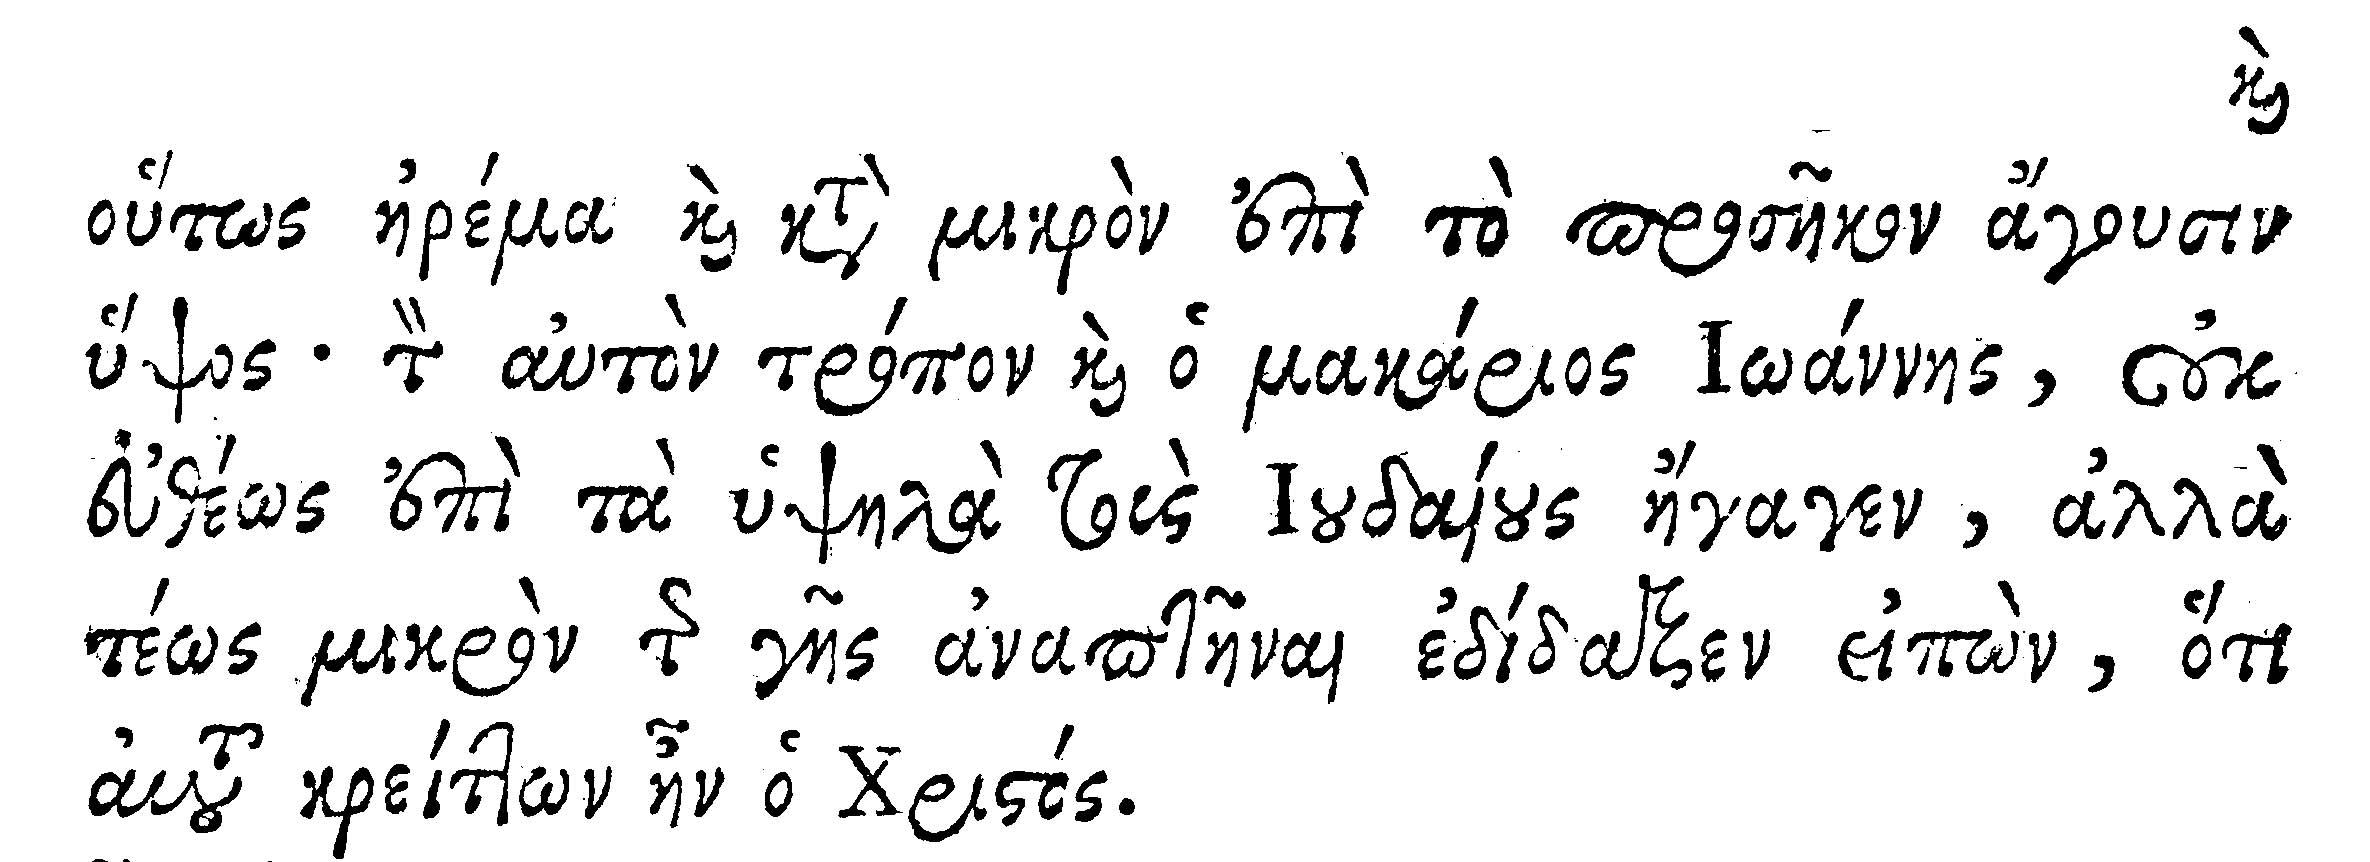 καὶ
οὕτως ἠρέμα καὶ κατὰ μικρὸν ἐπὶ τὸ προσῆκον ἄγουσιν
ὕψος· τὸν αὐτὸν τρόπον καὶ ὁ μακάριος Ιωάννης, οὐκ
εὐθέως ἐπὶ τὰ ὑψηλὰ τοὺς Ιουδαίους ἤγαγεν, ἀλλὰ
τέως μικρὸν τῆς γῆς ἀναπτῆναι ἐδίδαξεν εἰπὼν, ὅτι
αὐτοῦ κρείττων ἦν ὁ Χριστός.